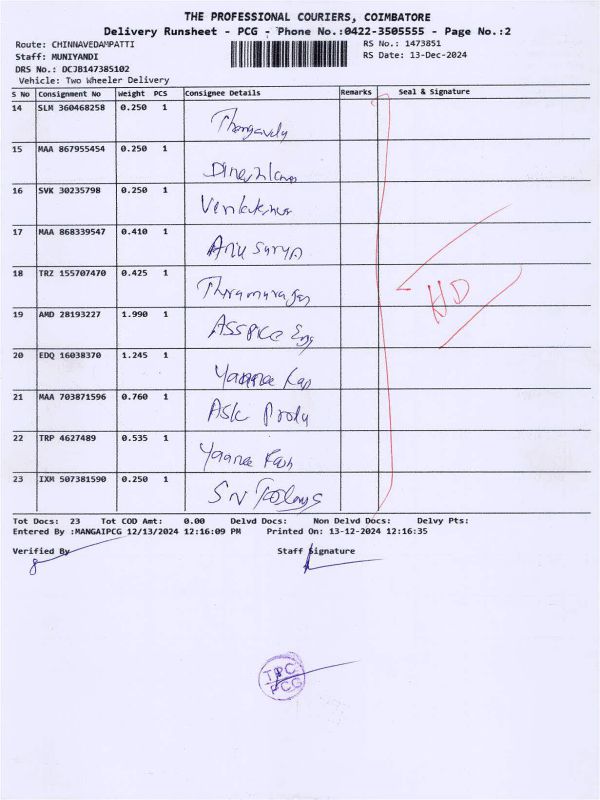 THE PROFESSIONAL COURIERS, COIMBATORE
Delivery Runsheet - PCG - Phone No.:0422-3505555 - Page No.:2
Route: CHINNAVEDAMPATTI RS No.: 1473851
Staff: MUNIYANDI RS Date: 13-Dec-2024
DRS No.: DCJB147385102
Vehicle: Two Wheeler Delivery
S No Consignment No Weight PCS Consignee Details Remarks Seal & Signature
14 SLM 360468258 0.250 1 Thangavelu
15 MAA 867955454 0.250 1
16 SVK 30235798 0.250 1
17 MAA 868339547 0.410 1 Anu Surya
18 TRZ 155707470 0.425 1 HD
19 AMD 28193227 1.990 1 Eng
20 EDQ 16038370 1.245 1
21 MAA 703871596 0.760 1 Ask
22 TRP 4627489 0.535 1
23 IXM 507381590 0.250 1 SN
Tot Docs: 23 Tot COD Amt: 0.00 Delvd Docs: Non Delvd Docs: Delvy Pts:
Entered By :MANGAIPCG 12/13/2024 12:16:09 PM Printed On: 13-12-2024 12:16:35
Verified By Staff Signature
TPC
PCG